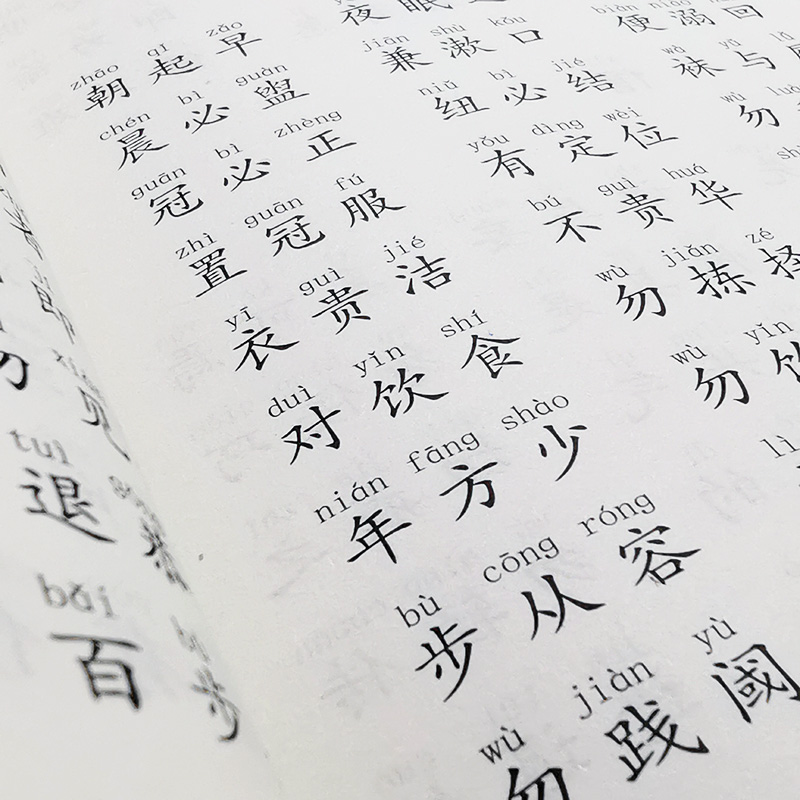 zhāo qǐ zǎo
朝起早 夜眠
chén bì guàn jiān shù kǒu biàn niào huí
晨必盥 兼漱口 便溺回
guān bì zhèng niǔ bì jié wà yǔ
冠必正 纽必结 袜与
zhì guān fú yǒu dìng wèi wù
置冠服 有定位 勿
yī guì jié bú guì huá
衣贵洁 不贵华
duì yǐn shí wù jiǎn zé
对饮食 勿拣择
nián fāng shào wù yǐn
年方少 勿饮
bù cōng róng lì
步从容
wù jiàn yù
勿践阈
tuì
退
bǎi
百